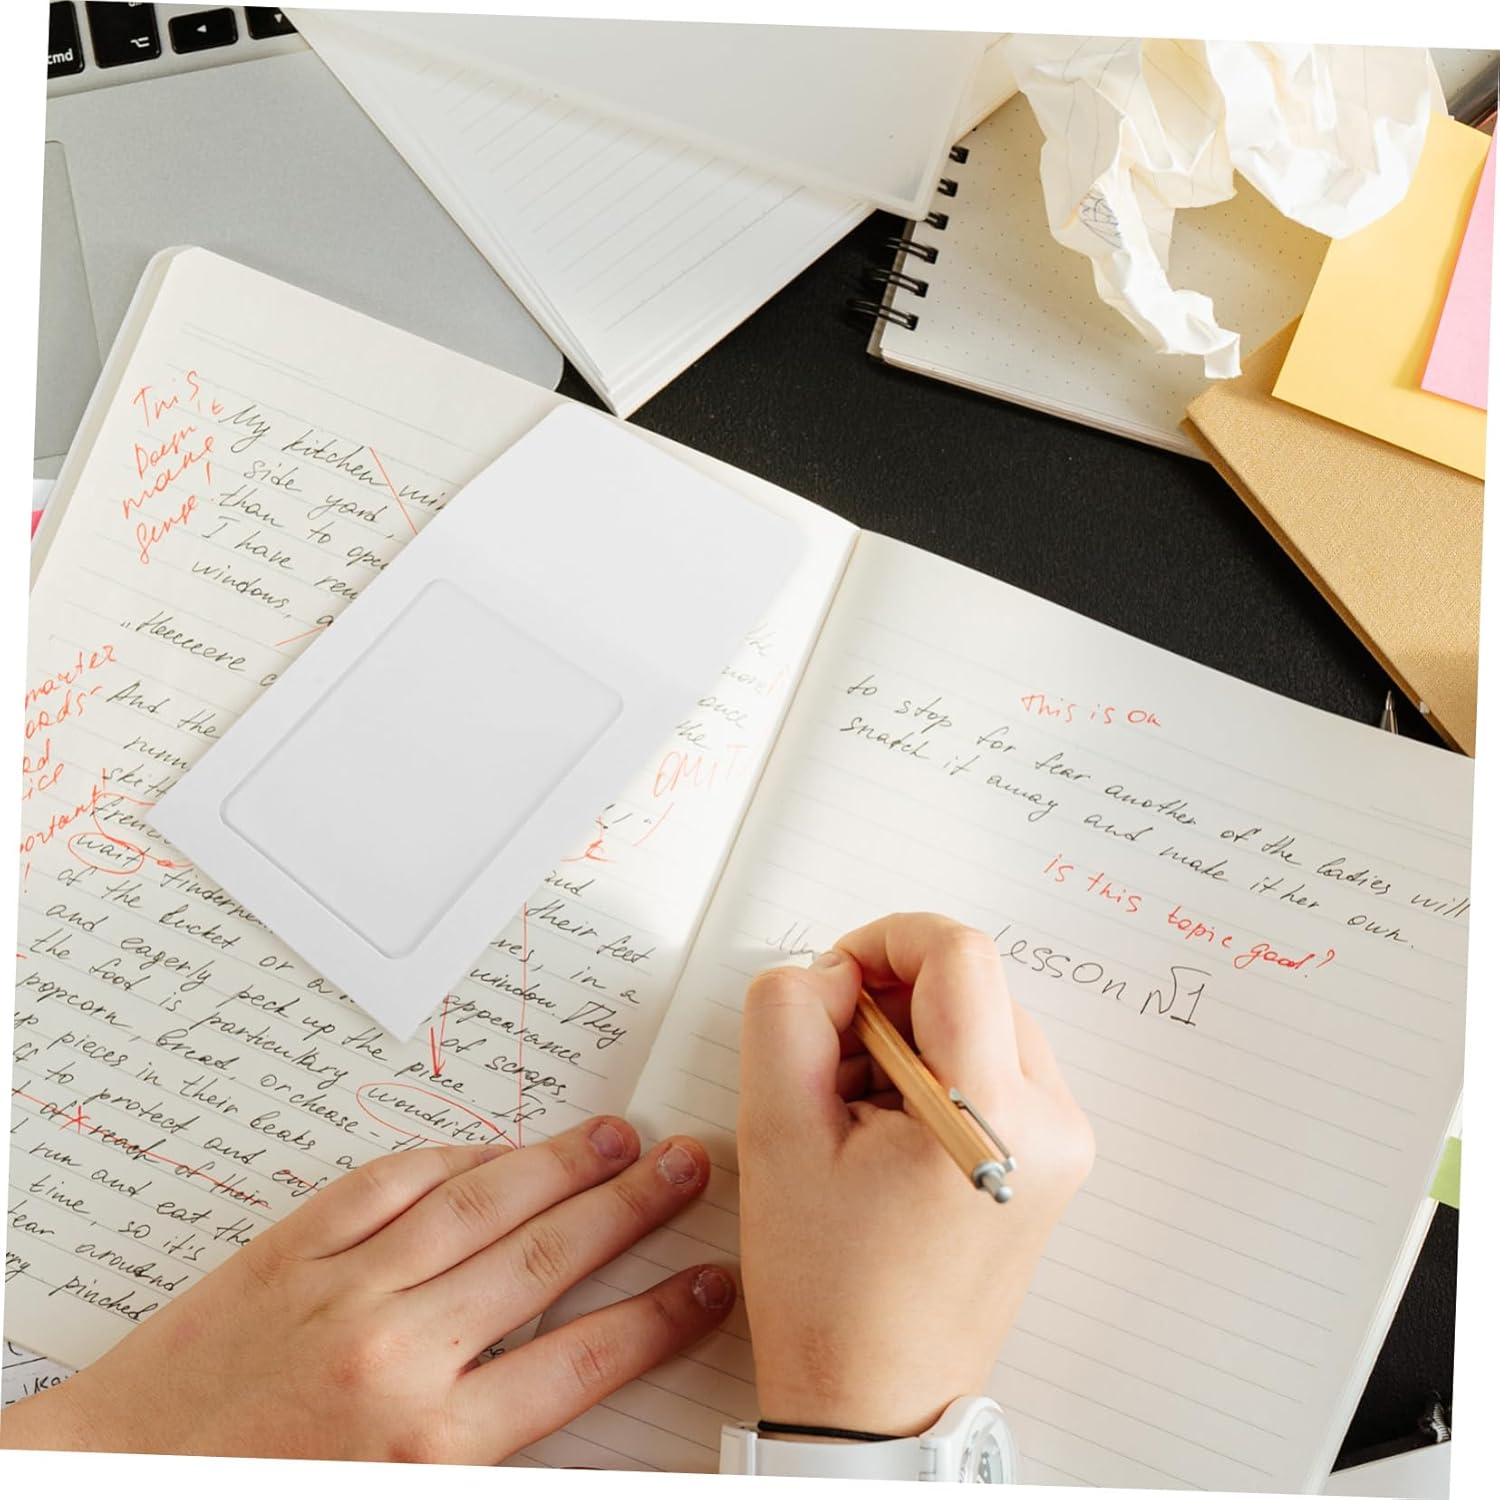 cmd
This
Doesn
make
sense!
My kitchen
side yard,
than to ope
I have ren
windows, a
"Heeeeere c
And the
runn
skitt
frenc
wait tinderne
of the bucket or a
and eagerly peck up the piece. If
the food is particulary wonderful
popcorn, bread, or cheese - th
up pieces in their beaks a
ff to protect and enj
t of reach of their
I run and eat the
time, so it's
ear around
rry pinched
marter
ords-
ortant
the
more!
ance
the
OMIT
!"
and
their feet
ves, in a
window. They
appearance
of scraps,
This is Ok
to stop for fear another of the ladies will
snatch it away and make it her own.
is this topic good?
Lesson №1